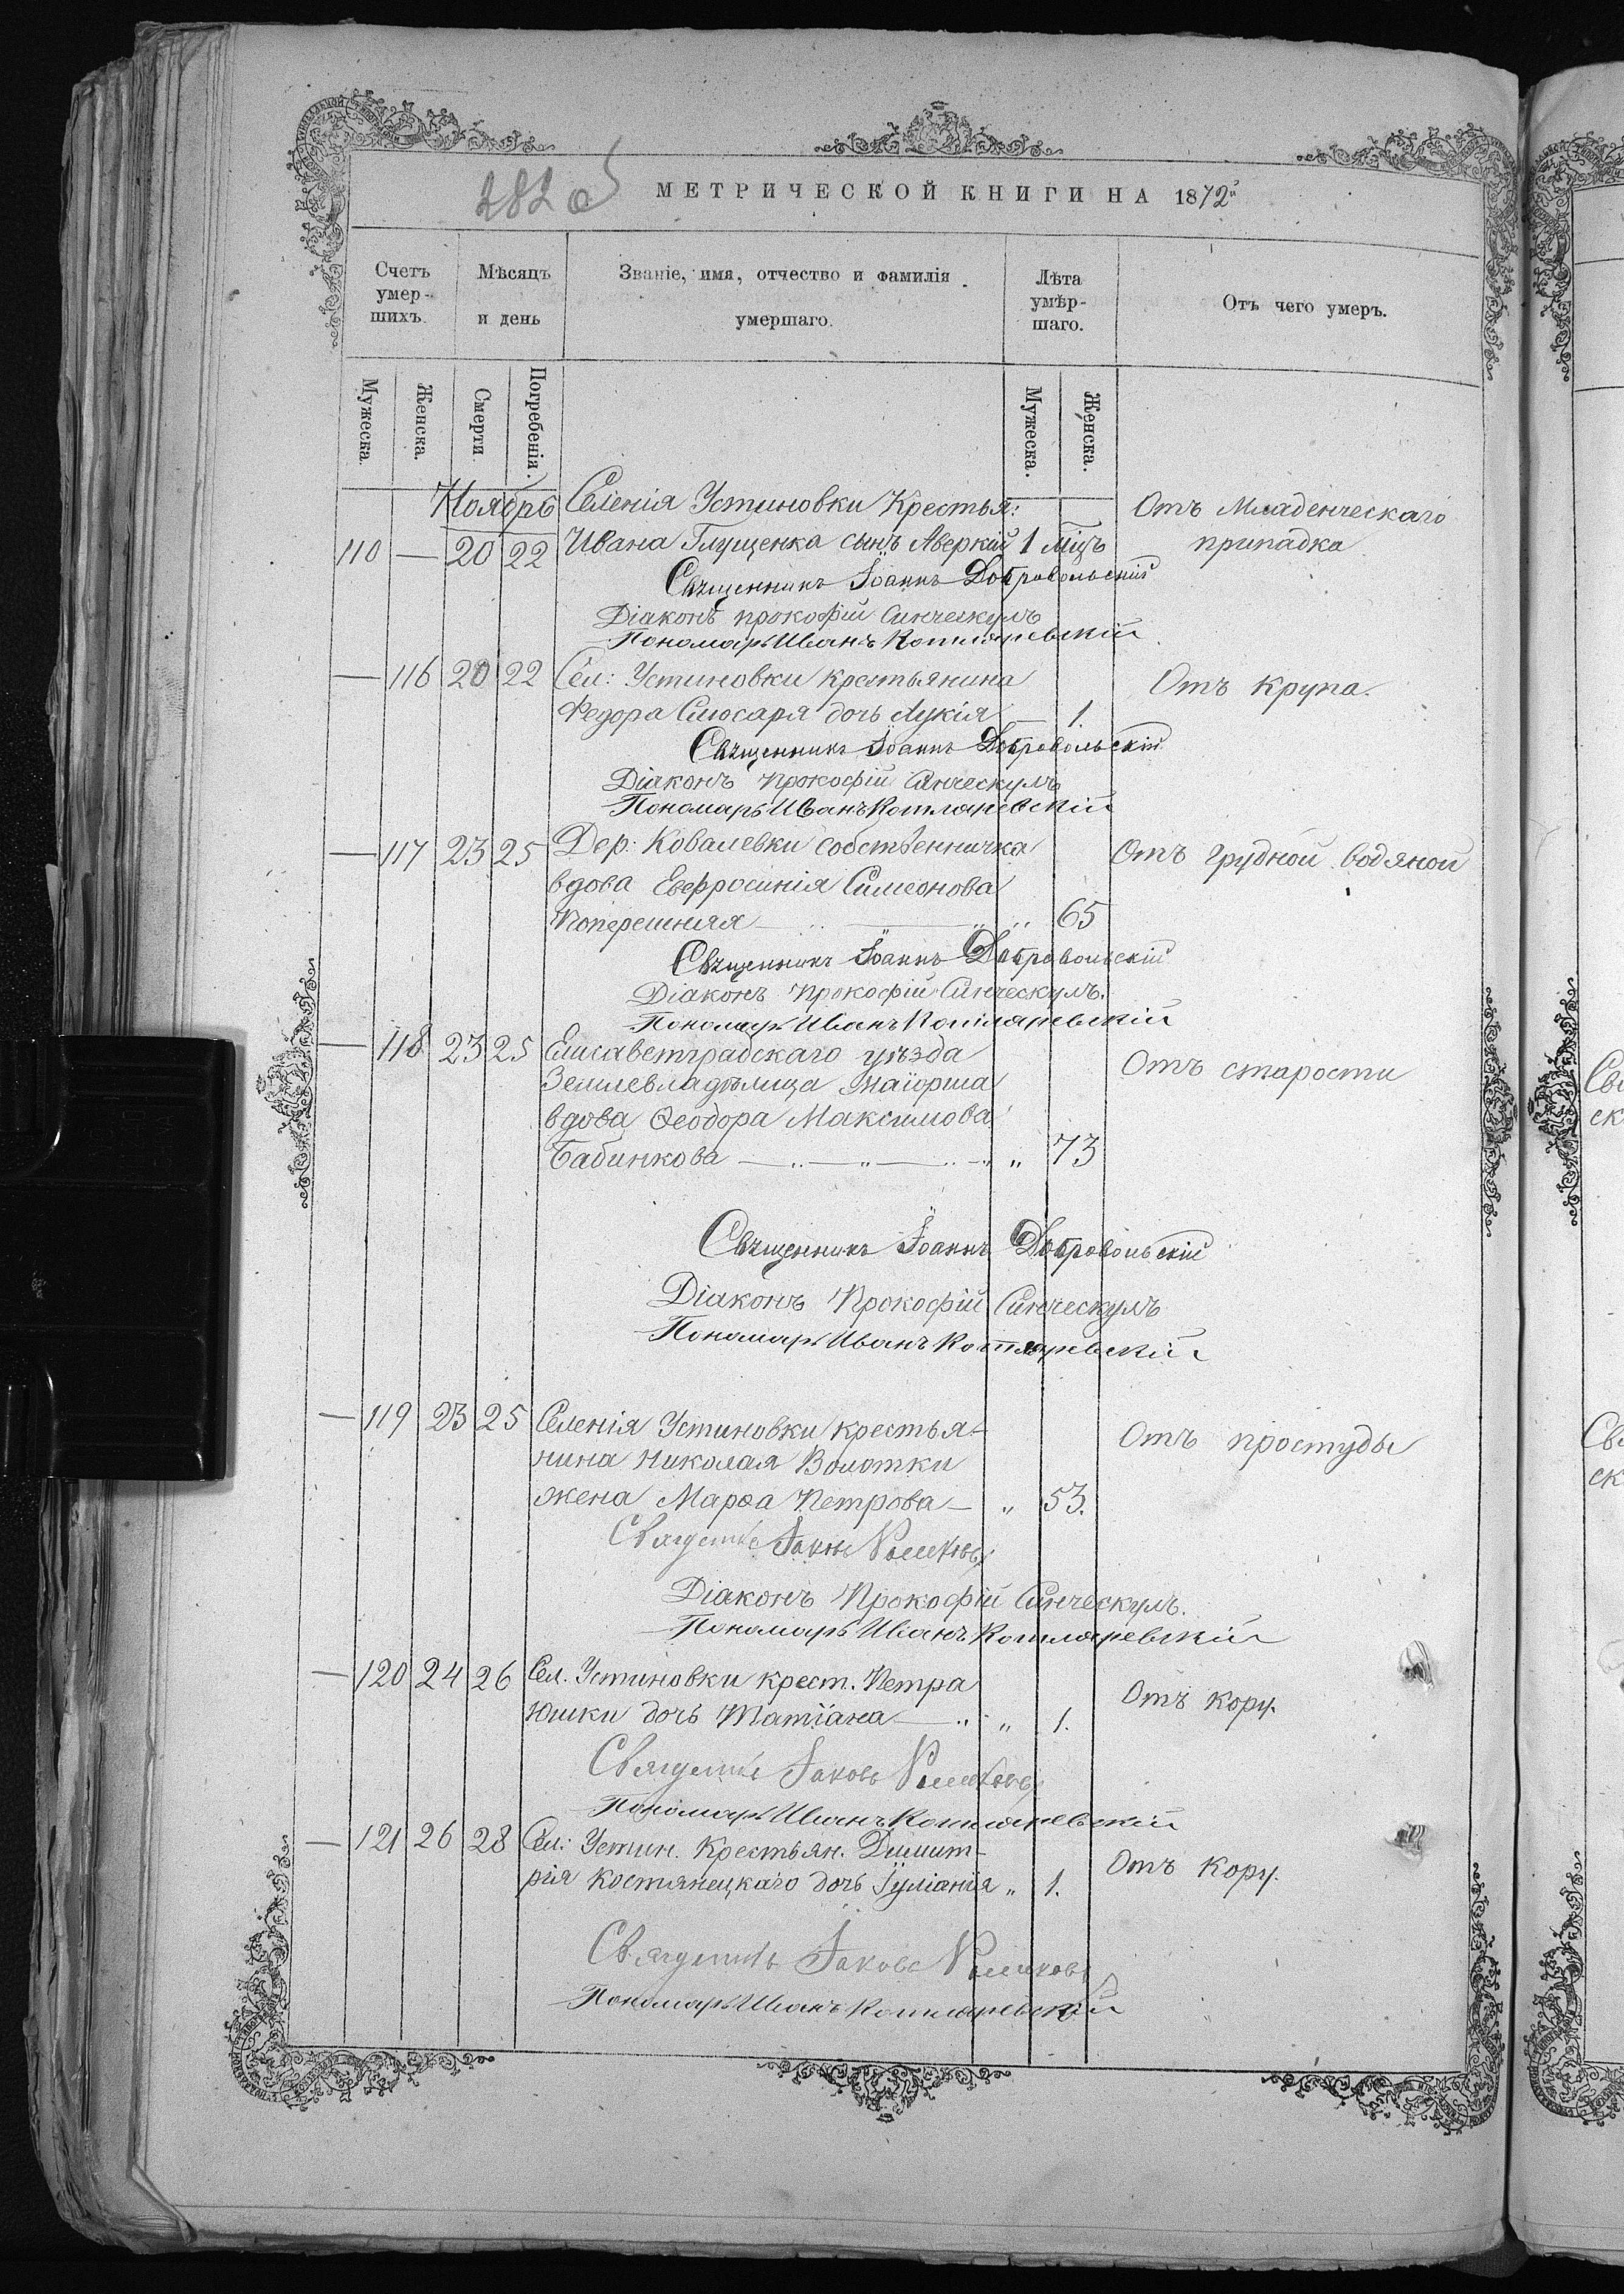 282 об
МЕТРИЧЕСКОЙ КНИГИ НА 1872й
Счетъ умер-шихъ.
Мѣсяцъ и день
Званіе, имя, отчество и фамилія умершаго.
Лѣта умѣр-шаго.
Отъ чего умеръ.
Мужеска. Женска. Смерти. Погребенія. Мужеска. Женска.
Ноябрь Селенія Устиновки Крестья: Отъ Младенческаго
110 — 20 22 Ивана Глущенка сынъ Аверкій 1 мцъ припадка
Священникъ Іоаннъ Добровольскій
Діаконъ Прокофій Синческулъ
Пономарь Иванъ Котляревскій
— 116 20 22 Сел: Устиновки крестьянина Отъ крупа.
Федора Слюсаря дочь Лукія — 1.
Священникъ Іоаннъ Добровольскій
Діаконъ Прокофій Синческулъ
Пономарь Иванъ Котляревскій
— 117 23 25 Дер: Ковалевки собственничка Отъ грудной водяной
вдова Евфросинія Симеонова
Поперешняя — „ 65
Священникъ Іоаннъ Добровольскій
Діаконъ Прокофій Синческулъ.
Пономарь Иванъ Котляревскій
— 118 23 25 Елисаветградскаго уѣзда Отъ старости
Землевладѣлица Маіорша
вдова Ѳеодора Максимова
Бабинкова — „ — „ — „ — „ „ 73
Священникъ Іоаннъ Добровольскій
Діаконъ Прокофій Синческулъ
Пономарь Иванъ Котляревскій
— 119 23 25 Селенія Устиновки крестья- Отъ простуды
нина Николая Волотки
жена Марѳа Петрова — „ 53.
Священникъ Іаковъ
Діаконъ Прокофій Синческулъ.
Пономарь Иванъ Котляревскій
— 120 24 26 Сел. Устиновки крест. Петра Отъ кору.
Юшки дочь Татіана — „ „ 1.
Священникъ Іаковъ
Пономарь Иванъ Котляревскій
— 121 26 28 Сел: Устин. Крестьян. Димит- Отъ кору.
рія Костянецкаго дочь Іуліанія „ 1.
Священникъ Іаковъ
Пономарь Иванъ Котляревскій